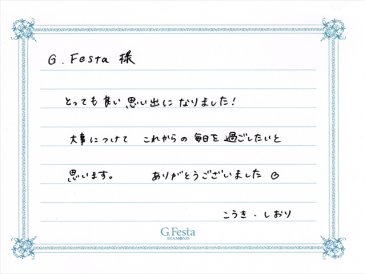 G.Festa 様
とっても良い思い出になりました!
大事につけて これからの毎日を過ごしたいと
思います。 ありがとうございました☺
こうき・しおり
G.Festa
DIAMOND